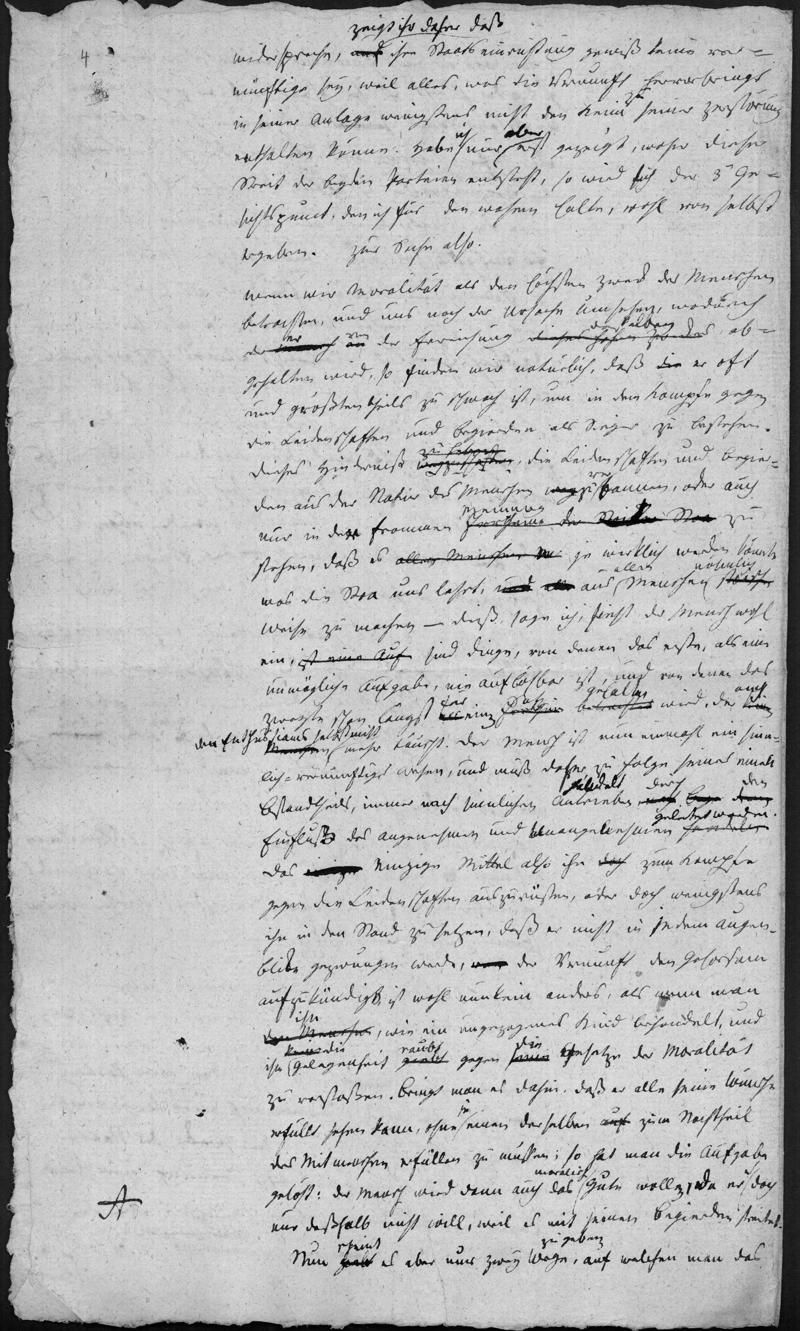 4
zeigt ihr daher daß
widerspreche, auf ihre Staatseinrichtung gewiß keine ver=
nünftige sey, weil alles, was die Vernunft hervorbringt
in seiner Anlage wenigstens nicht den Keim zu seiner Zerstörung
enthalten könne. Habe ich nur aber erst gezeigt, woher dieser
Streit der beyden Parteien entsteht, so wird sich der 3te Ge=
sichtspunct, den ich für den wahren halte, wohl von selbst
ergeben. Zur Sache also.
Wenn wir Moralität als den höchsten Zweck des Menschen
betrachten, und uns nach der Ursache umsehen, wodurch
er von der Erreichung desselben dieses hohen Zweckes, ab=
gehalten wird, so finden wir natürlich, daß er oft
und größtentheils zu schwach ist, um in dem Kampfe gegen
die Leidenschaften und Begierden als Sieger zu bestehen.
Dieses Hinderniß zu heben wegzuschaffen, die Leidenschaften und Begier=
den aus der Natur des Menschen zu verbannen, oder auch
nur in der frommen Meinung der Stoa zu
stehen, daß es allen Menschen je wirklich werden könnte
was die Stoa uns lehrt, und aus allen Menschen nehmlich
Weise zu machen — dieß, sage ich, sieht der Mensch wohl
ein, ist eine Auf sind Dinge, von denen das erste, als eine
unmögliche Aufgabe, nie auflösbar ist, und von denen das
zweyte schon längst für ein gehalten betrachtet wird, der auch
den Enthusiasmus selbst nicht
Menschen mehr täuscht. Der Mensch ist nun einmahl ein sinn=
lich=vernünftiges Wesen, und muß daher zu folge seines einen
Bestandtheils, immer nach sinnlichen Antrieben handeln durch den
Einfluß des Angenehmen und Unangenehmen geleitet werden.
Das einzige Mittel also ihn doch zum Kampfe
gegen die Leidenschaften auszurüsten, oder doch wenigstens
ihn in den Stand zu setzen, daß er nicht in jedem Augen=
blicke gezwungen werde, der Vernunft den Gehorsam
aufzukündigen, ist wohl nun kein anders, als wenn man
ihn
den Menschen, wie ein ungezogenes Kind behandelt, und
ihm die Gelegenheit raubt gegen die Gesetze der Moralität
zu verstoßen. Bringt man es dahin, daß er alle seine Wünsche
erfüllt sehen kann, ohne einen derselben auf zum Nachtheil
des Mitmenschen erfüllen zu müssen; so hat man die Aufgabe
gelöst: der Mensch wird dann auch das moralisch Gute wollen, da er doch
nur deßhalb nicht will, weil es mit seinen Begierden streitet.
A
Nun scheint es aber nur zwey Wege zu geben, auf welchen man das